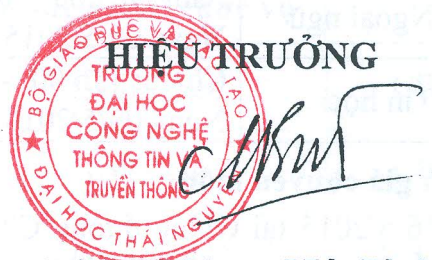 HIỆU TRƯỞNG
BỘ GIÁO DỤC VÀ ĐÀO TẠO
TRƯỜNG
ĐẠI HỌC
CÔNG NGHỆ
THÔNG TIN VÀ
TRUYỀN THÔNG
ĐẠI HỌC THÁI NGUYÊN